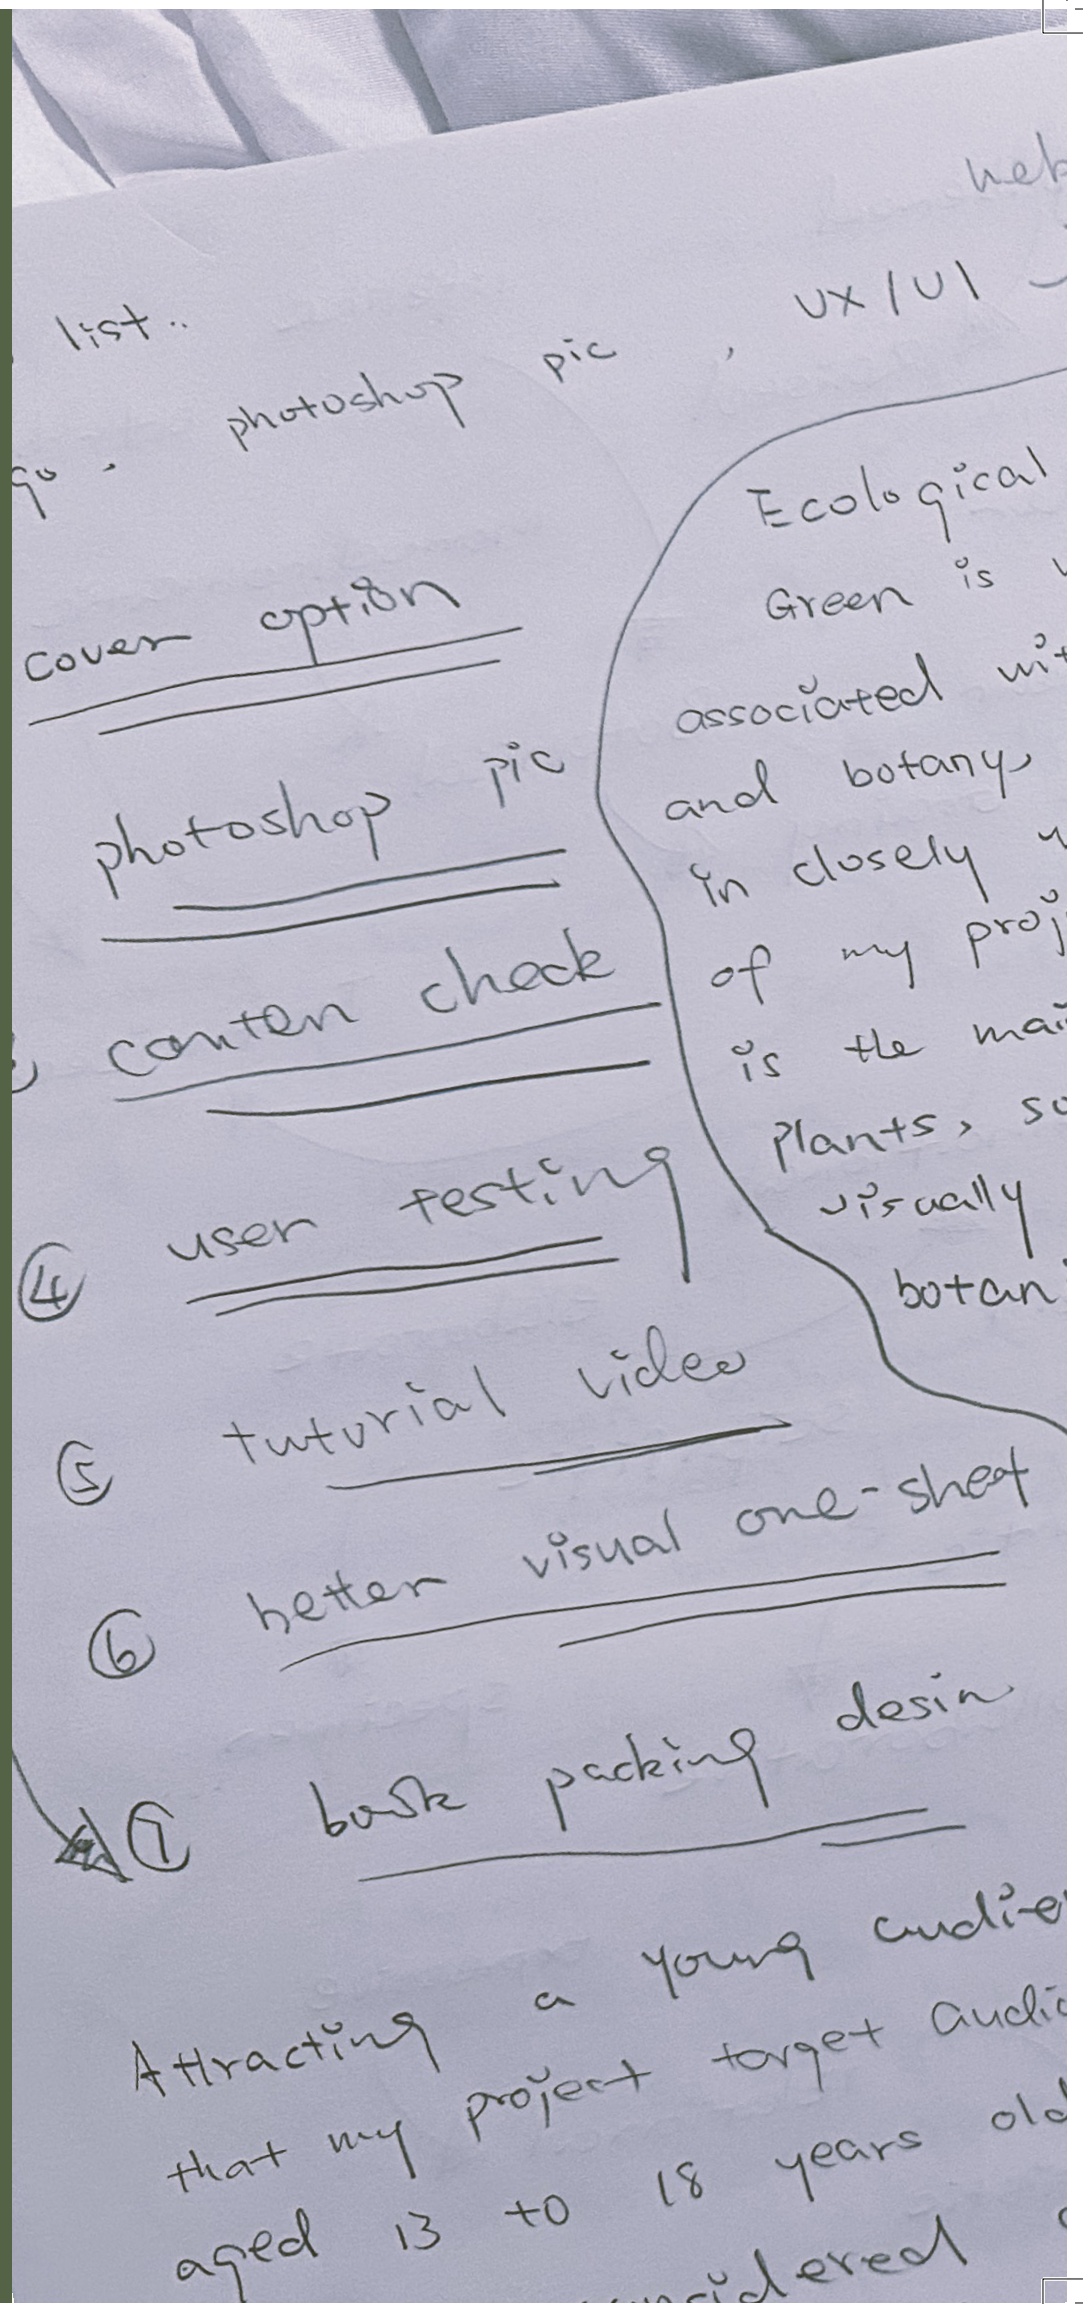 list..
photoshop pic , UX/UI
cover option
photoshop pic
conten check
④ user testing
⑤ tutorial video
⑥ better visual one-sheet
⑦ book packing desin
Ecological
Green is
associated
and botany,
in closely
of my
is the
plants,
visually
Attracting a young
that my project target
aged 13 to 18 years old